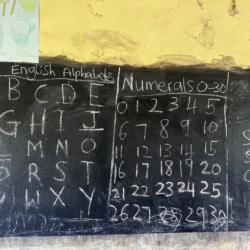 English Alphabets
B C D E
G H I J
M N O
R S T
W X Y
Numerals 0-30
0 1 2 3 4 5
6 7 8 9 10
11 12 13 14 15
16 17 18 19 20
21 22 23 24 25
26 27 28 29 30